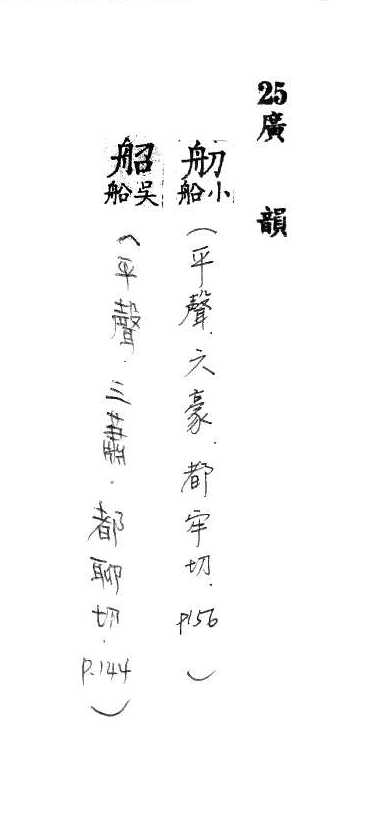 25廣韻
舠小船(平聲.六豪.都牢切.P156)
䑲吳船(平聲.三蕭.都聊切.P.144)